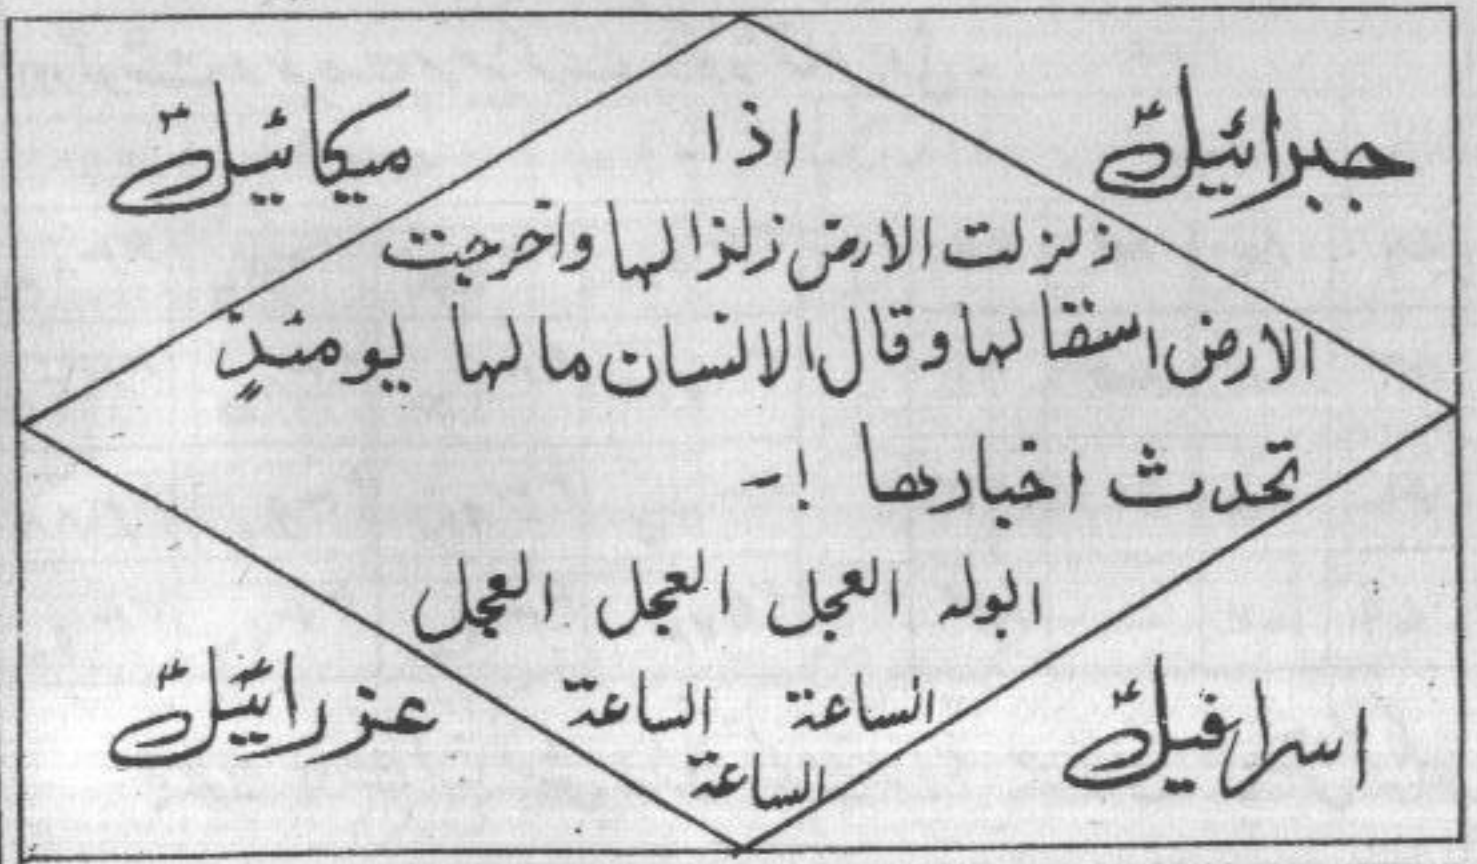 جبرائیلؑ
میکائیلؑ
اذا
زلزلت الارض زلزالها واخرجت
الارض اسقالها وقال الانسان مالها یومئذٍ
تحدث اخبارها !-
العجل العجل العجل
الساعة الساعة
الساعة
اسرافیلؑ
عزرائیلؑ